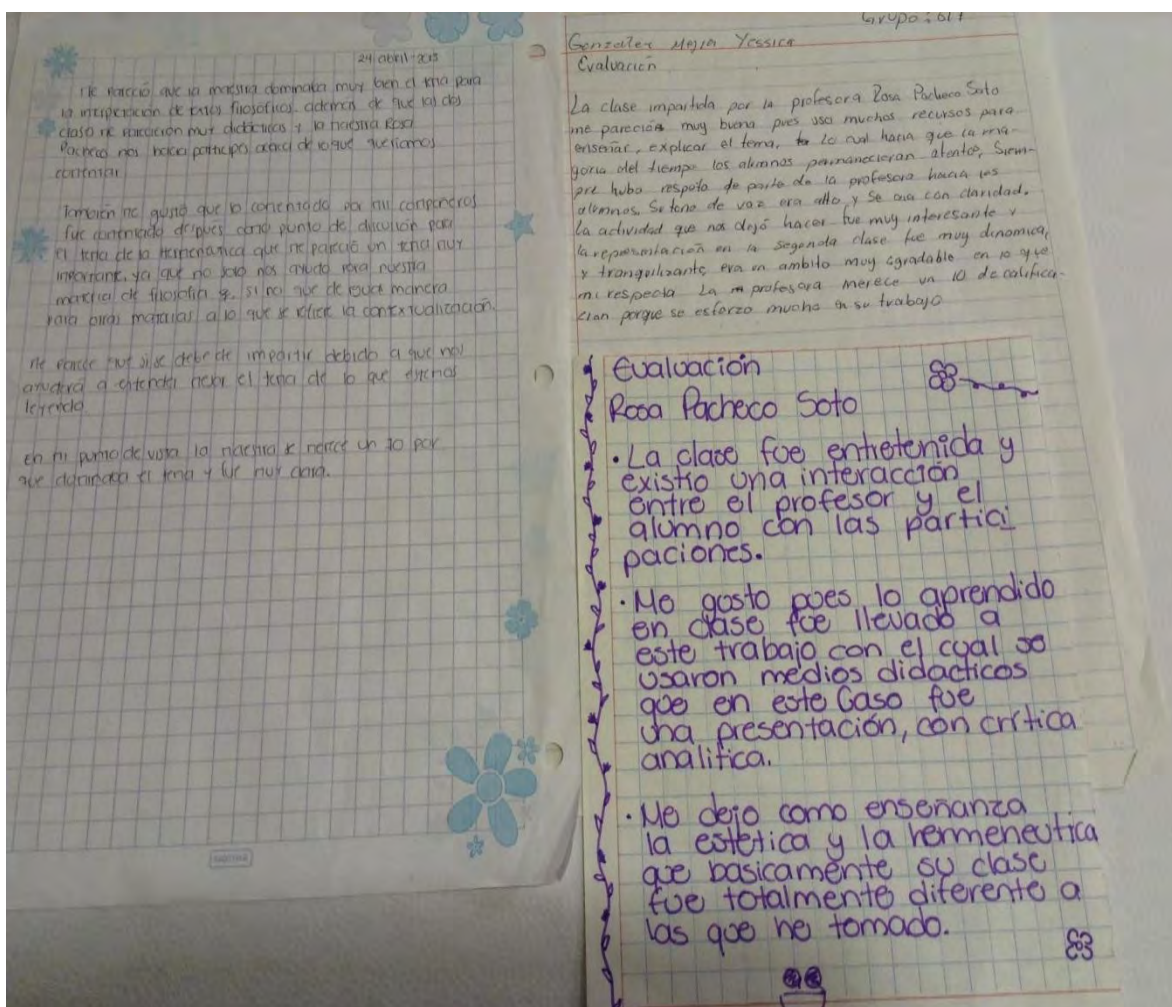 24 abril-2015
Me pareció que la maestra dominaba muy bien el tema para
la interpretación de textos filosóficos además de que las dos
clase me parecieron muy didácticas y la maestra Rosa
Pacheco nos hacia participes acerca de lo que queríamos
comentar
También me gustó que lo comentado por mi compañeros
fue comentado después como punto de discusión para
el tema de la hermenéutica que me pareció un tema muy
importante, ya que no solo nos ayuda para nuestra
materia de filosofía si no que de igual manera
para otras materias a lo que se refiere la contextualización.
Me parece que si se debe de impartir debido a que nos
ayudará a entender mejor el tema de lo que estemos
leyendo
en mi punto de vista la maestra se merece un 10 por
que dominaba el tema y fue muy clara.
Grupo: 611
González Mejía Yessica
Evaluación
La clase impartida por la profesora Rosa Pacheco Soto
me pareció muy buena pues uso muchos recursos para
enseñar, explicar el tema, lo cual hacia que la ma-
yoria del tiempo los alumnos permanecieran atentos, Siem-
pre hubo respeto de parte de la profesora hacia los
alumnos. Su tono de voz era alto y se oia con claridad.
La actividad que nos dejó hacer fue muy interesante y
la representación en la segunda clase fue muy dinamica,
y tranquilizante, era un ambito muy agradable en lo que
mi respecta La profesora merece un 10 de califica-
cion porque se esforzo mucho en su trabajo
Evaluación
Rosa Pacheco Soto
• La clase fue entretenida y
existio una interacción
entre el profesor y el
alumno con las partici
paciones.
• Me gusto pues lo aprendido
en clase fue llevado a
este trabajo con el cual se
usaron medios didacticos
que en este Caso fue
una presentación, con crítica
analitica.
• Me dejo como enseñanza
la estética y la hermeneutica
que basicamente su clase
fue totalmente diferente a
las que he tomado.